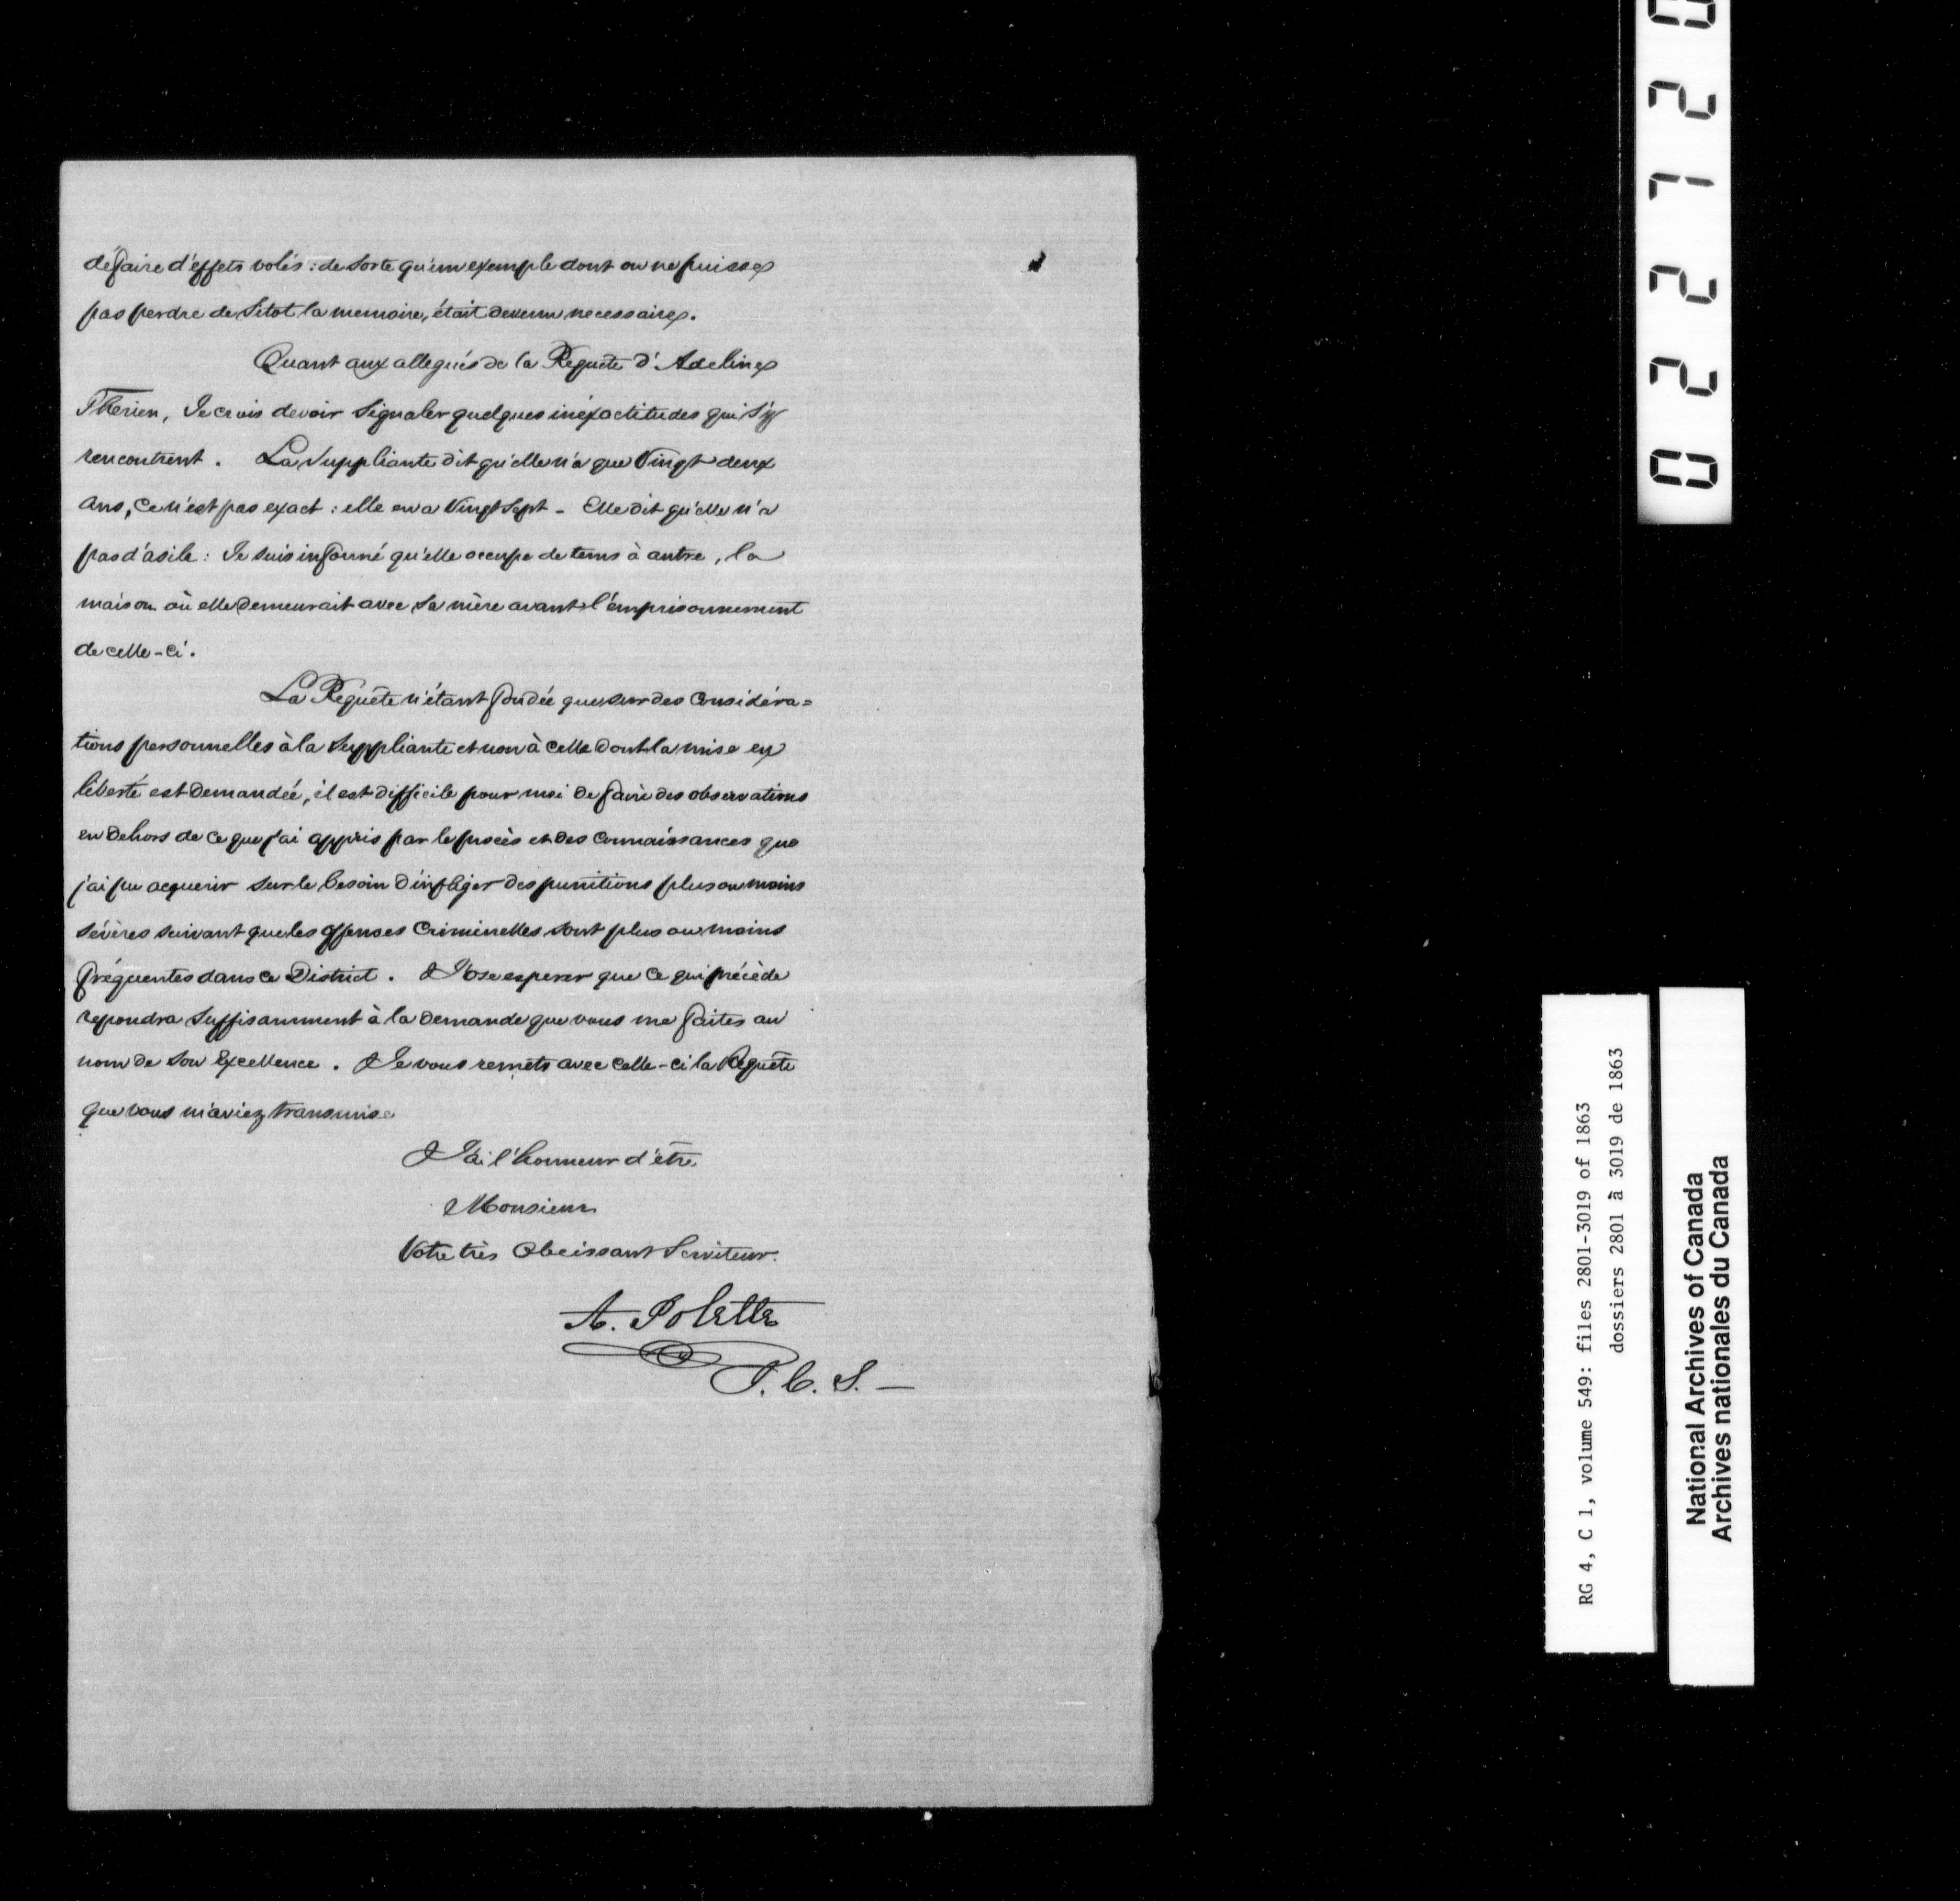 défaire d'éffets volés : de sorte qu'un exemple dont on ne puisse
pas perdre de Sitot la memoire, était devenu necessaire.
Quant aux allegués de la Requête d'Adeline
Therien, Je crois devoir Signaler quelques inéxactitudes qui S'y
rencontrent. La Suppliante dit qu'elle n'a que Vingt deux
ans, Ce n'est pas exact : elle en a Vingt Sept - Elle dit qu'elle n'a
pas d'asile : Je suis informé qu'elle occupe de tems à autre, la
maison où elle demeurait avec Sa mère avant l'émprisonnement
de celle-ci.
La Requête n'étant fondée que sur des Considéra=
tions personnelles à la Suppliante et non à celle dont la mise en
liberté est demandée, il est difficile pour moi de faire des observations
en dehors de ce que j'ai appris par le procès et des Connaissances que
j'ai pu acquerir sur le besoin d'infliger des punitions plus ou moins
sévères suivant que les offenses Criminelles sont plus ou moins
fréquentes dans ce District. J'ose esperer que ce qui précède
repondra Suffisamment à la demande que vous me faites au
nom de Son Excellence. Je vous remets avec celle-ci la Requête
que vous m'aviez transmise
J'ai l'honneur d'être
Monsieur
Votre très Obeissant Serviteur.
A. Polette
J. C. S. —
0 2 2 7 2 0
RG 4, C 1, volume 549: files 2801-3019 of 1863
dossiers 2801 à 3019 de 1863
National Archives of Canada
Archives nationales du Canada